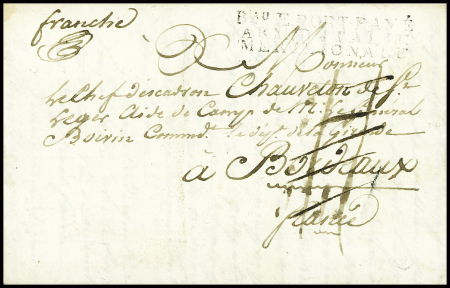 franche
Bau E PORT PAYÉ
ARM
MERIDIONALE
A Monsieur
Le Chef d'escadron Chauveton de St
Leger Aide de Camp de M. le General
Boivin Command.t le Dep.t de la Gironde
à Bordeaux
France